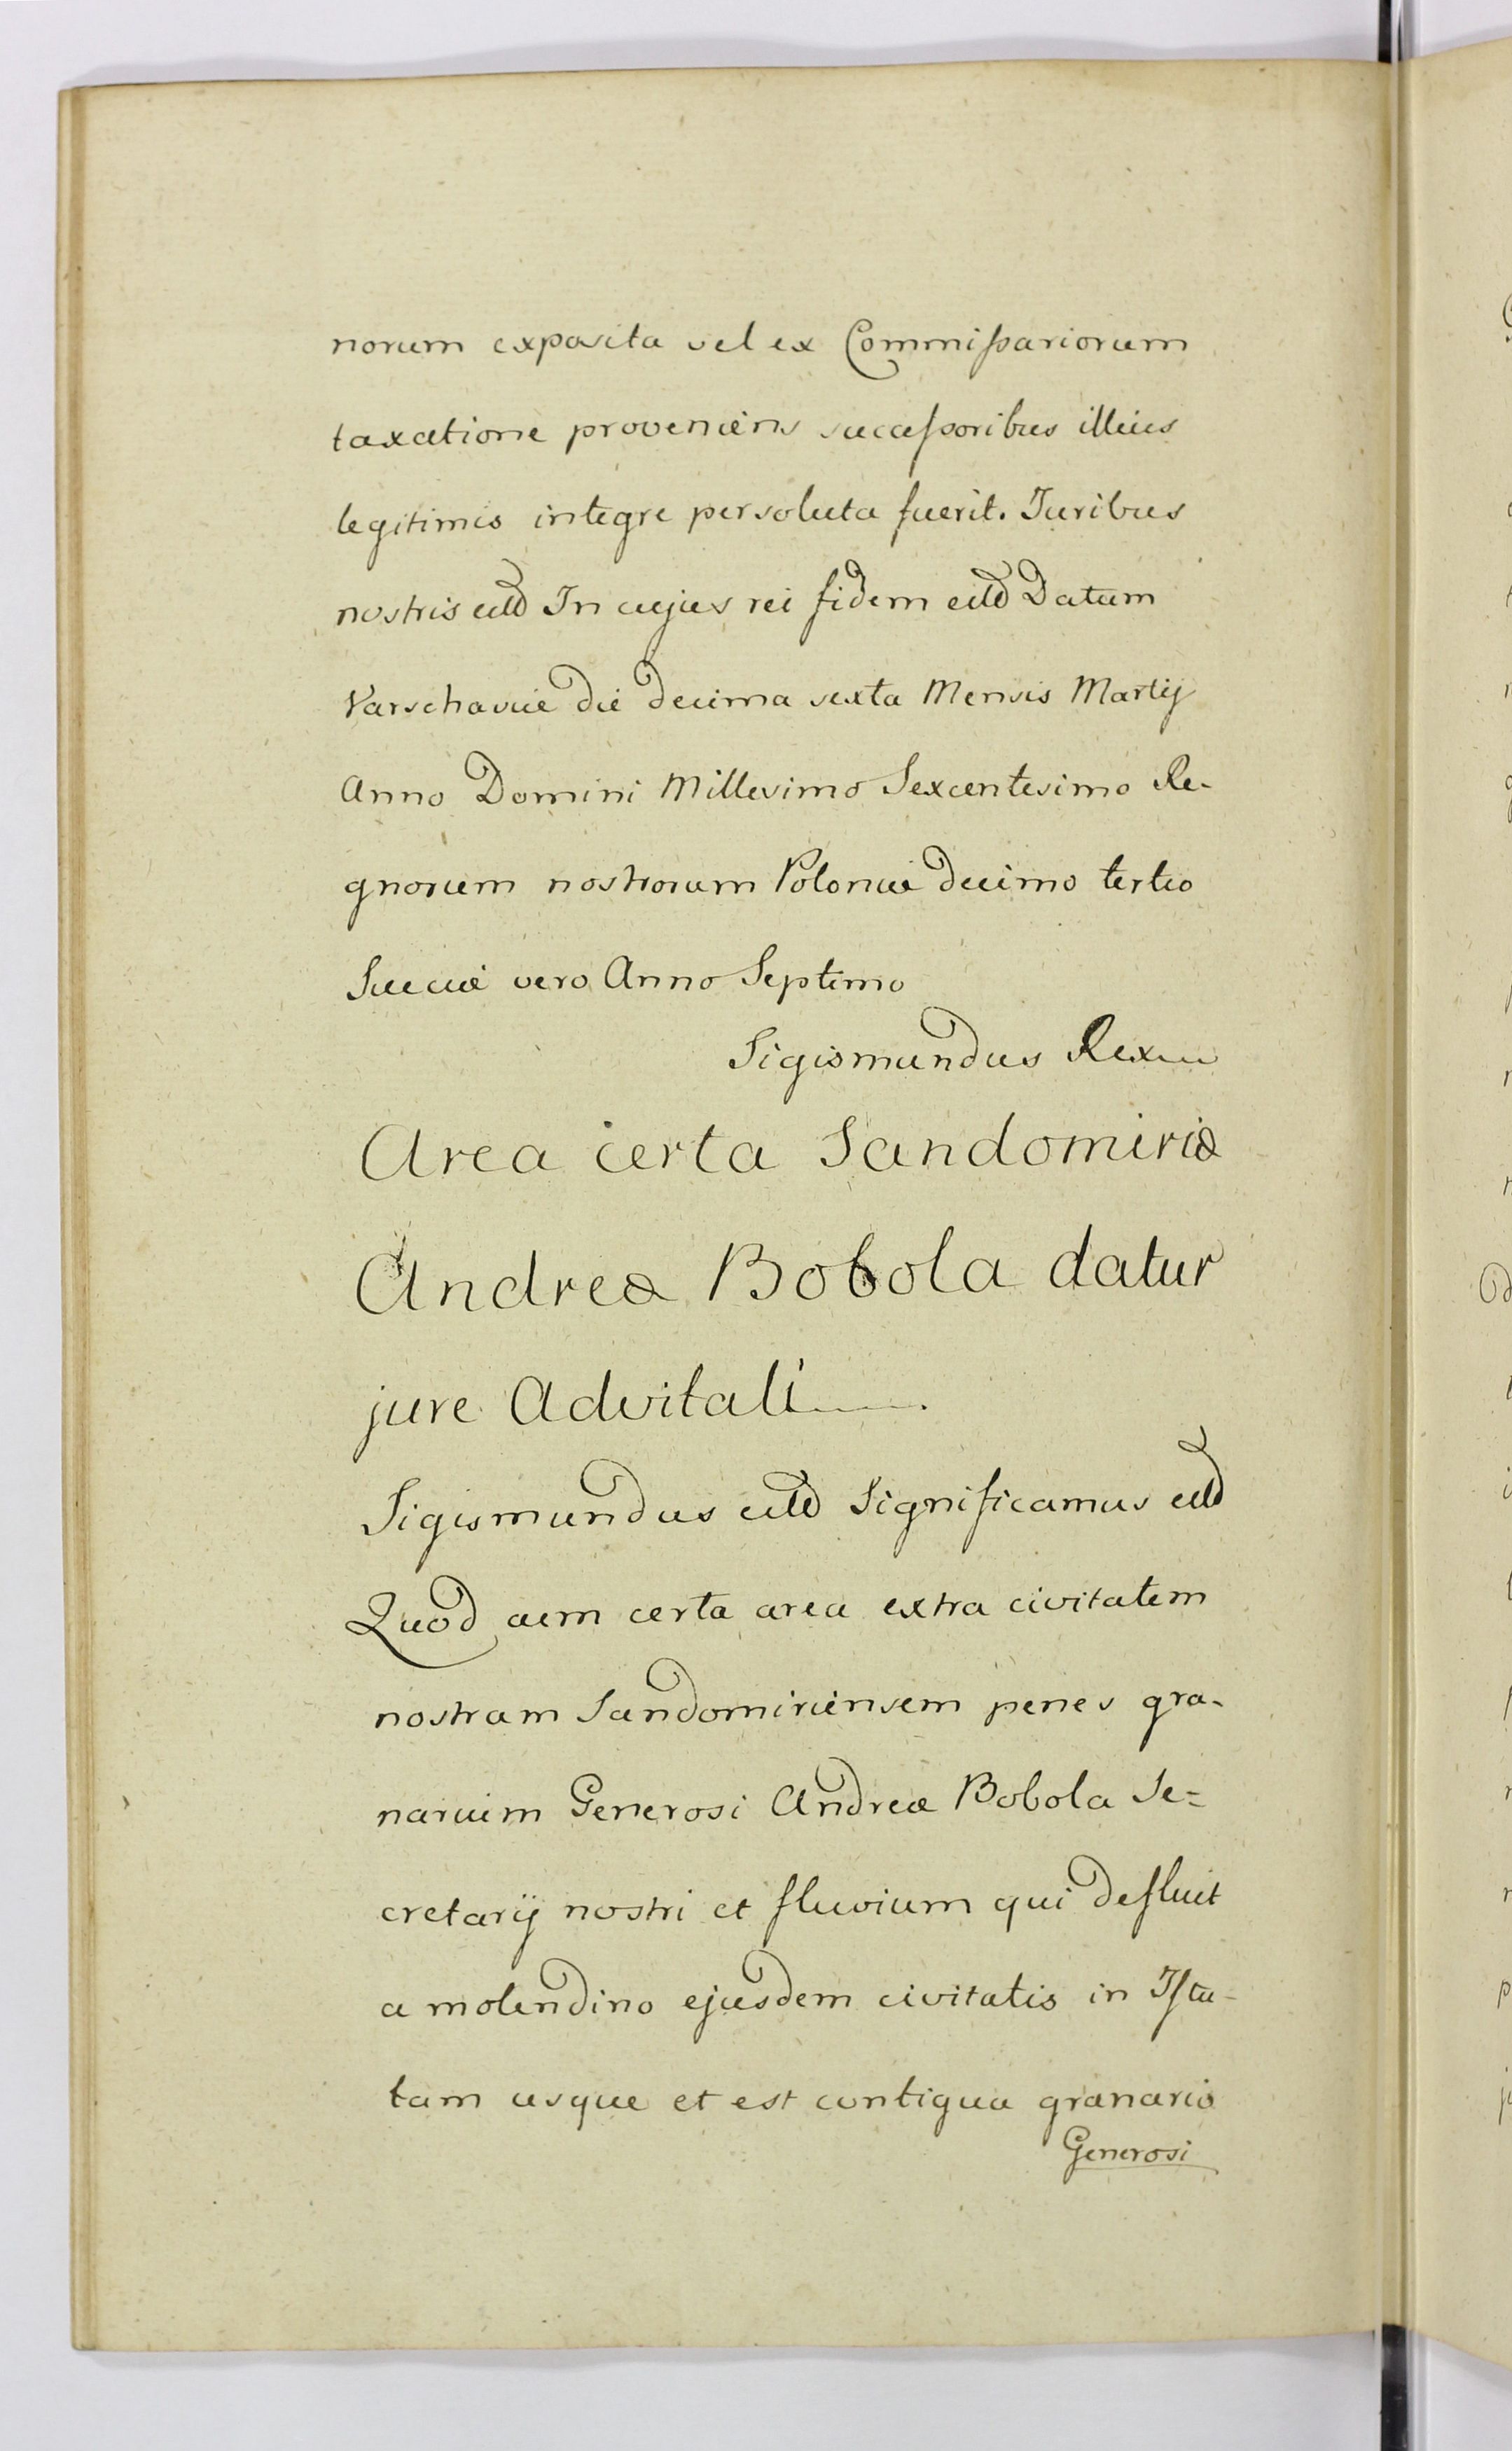 norum exposita vel ex Commißariorum
taxatione proveniens succeßoribus illius
legitimis integre persoluta fuerit. Juribus
nostris etc In cujus rei fidem etc Datum
Varschaviæ die decima sexta Mensis Martij
Anno Domini Millesimo Sexcentesimo Re-
gnorum nostrorum Poloniæ decimo tertio
Sueciæ vero Anno Septimo
Sigismundus Rex
Area certa Sandomiriæ
Andreæ Bobola datur
jure Advitali
Sigismundus etc Significamus etc
Quod cum certa area extra civitatem
nostram Sandomiriensem penes gra-
narium Generosi Andreæ Bobola Se=
cretarij nostri et fluvium qui defluit
a molendino ejusdem civitatis in Istu-
lam usque et est contigua granario
Generosi